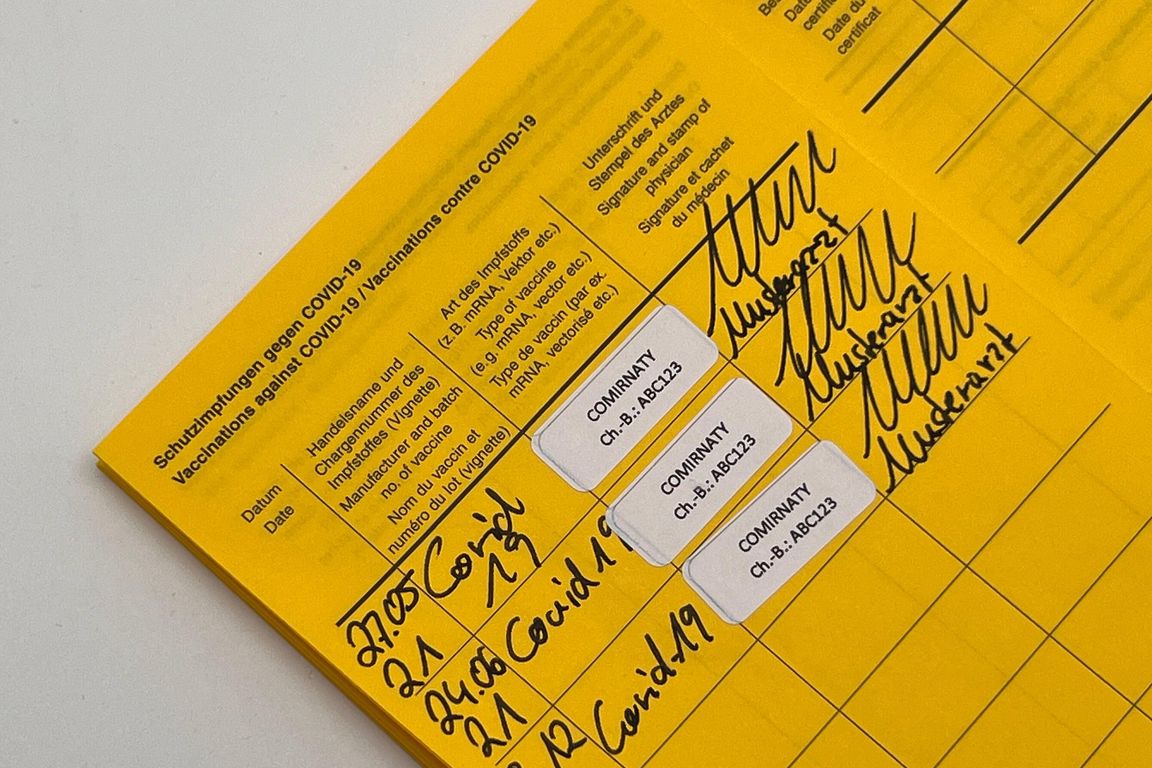 Schutzimpfungen gegen COVID-19
Vaccinations against COVID-19 / Vaccinations contre COVID-19
Datum
Date
Handelsname und
Chargennummer des
Impfstoffes (Vignette)
Manufacturer and batch
no. of vaccine
Nom du vaccin et
numéro du lot (vignette)
Art des Impfstoffs
(z.B. mRNA, Vektor etc.)
Type of vaccine
(e.g. mRNA, vector etc.)
Type de vaccin (par ex.
mRNA, vectorisé etc.)
Unterschrift und
Stempel des Arztes
Signature and stamp of
physician
Signature et cachet
du médecin
27.05
21
Covid
19
COMIRNATY
Ch.-B.: ABC123
Musterarzt
24.06
21
Covid 19
COMIRNATY
Ch.-B.: ABC123
Musterarzt
12
Covid-19
COMIRNATY
Ch.-B.: ABC123
Musterarzt
Date du
certificat